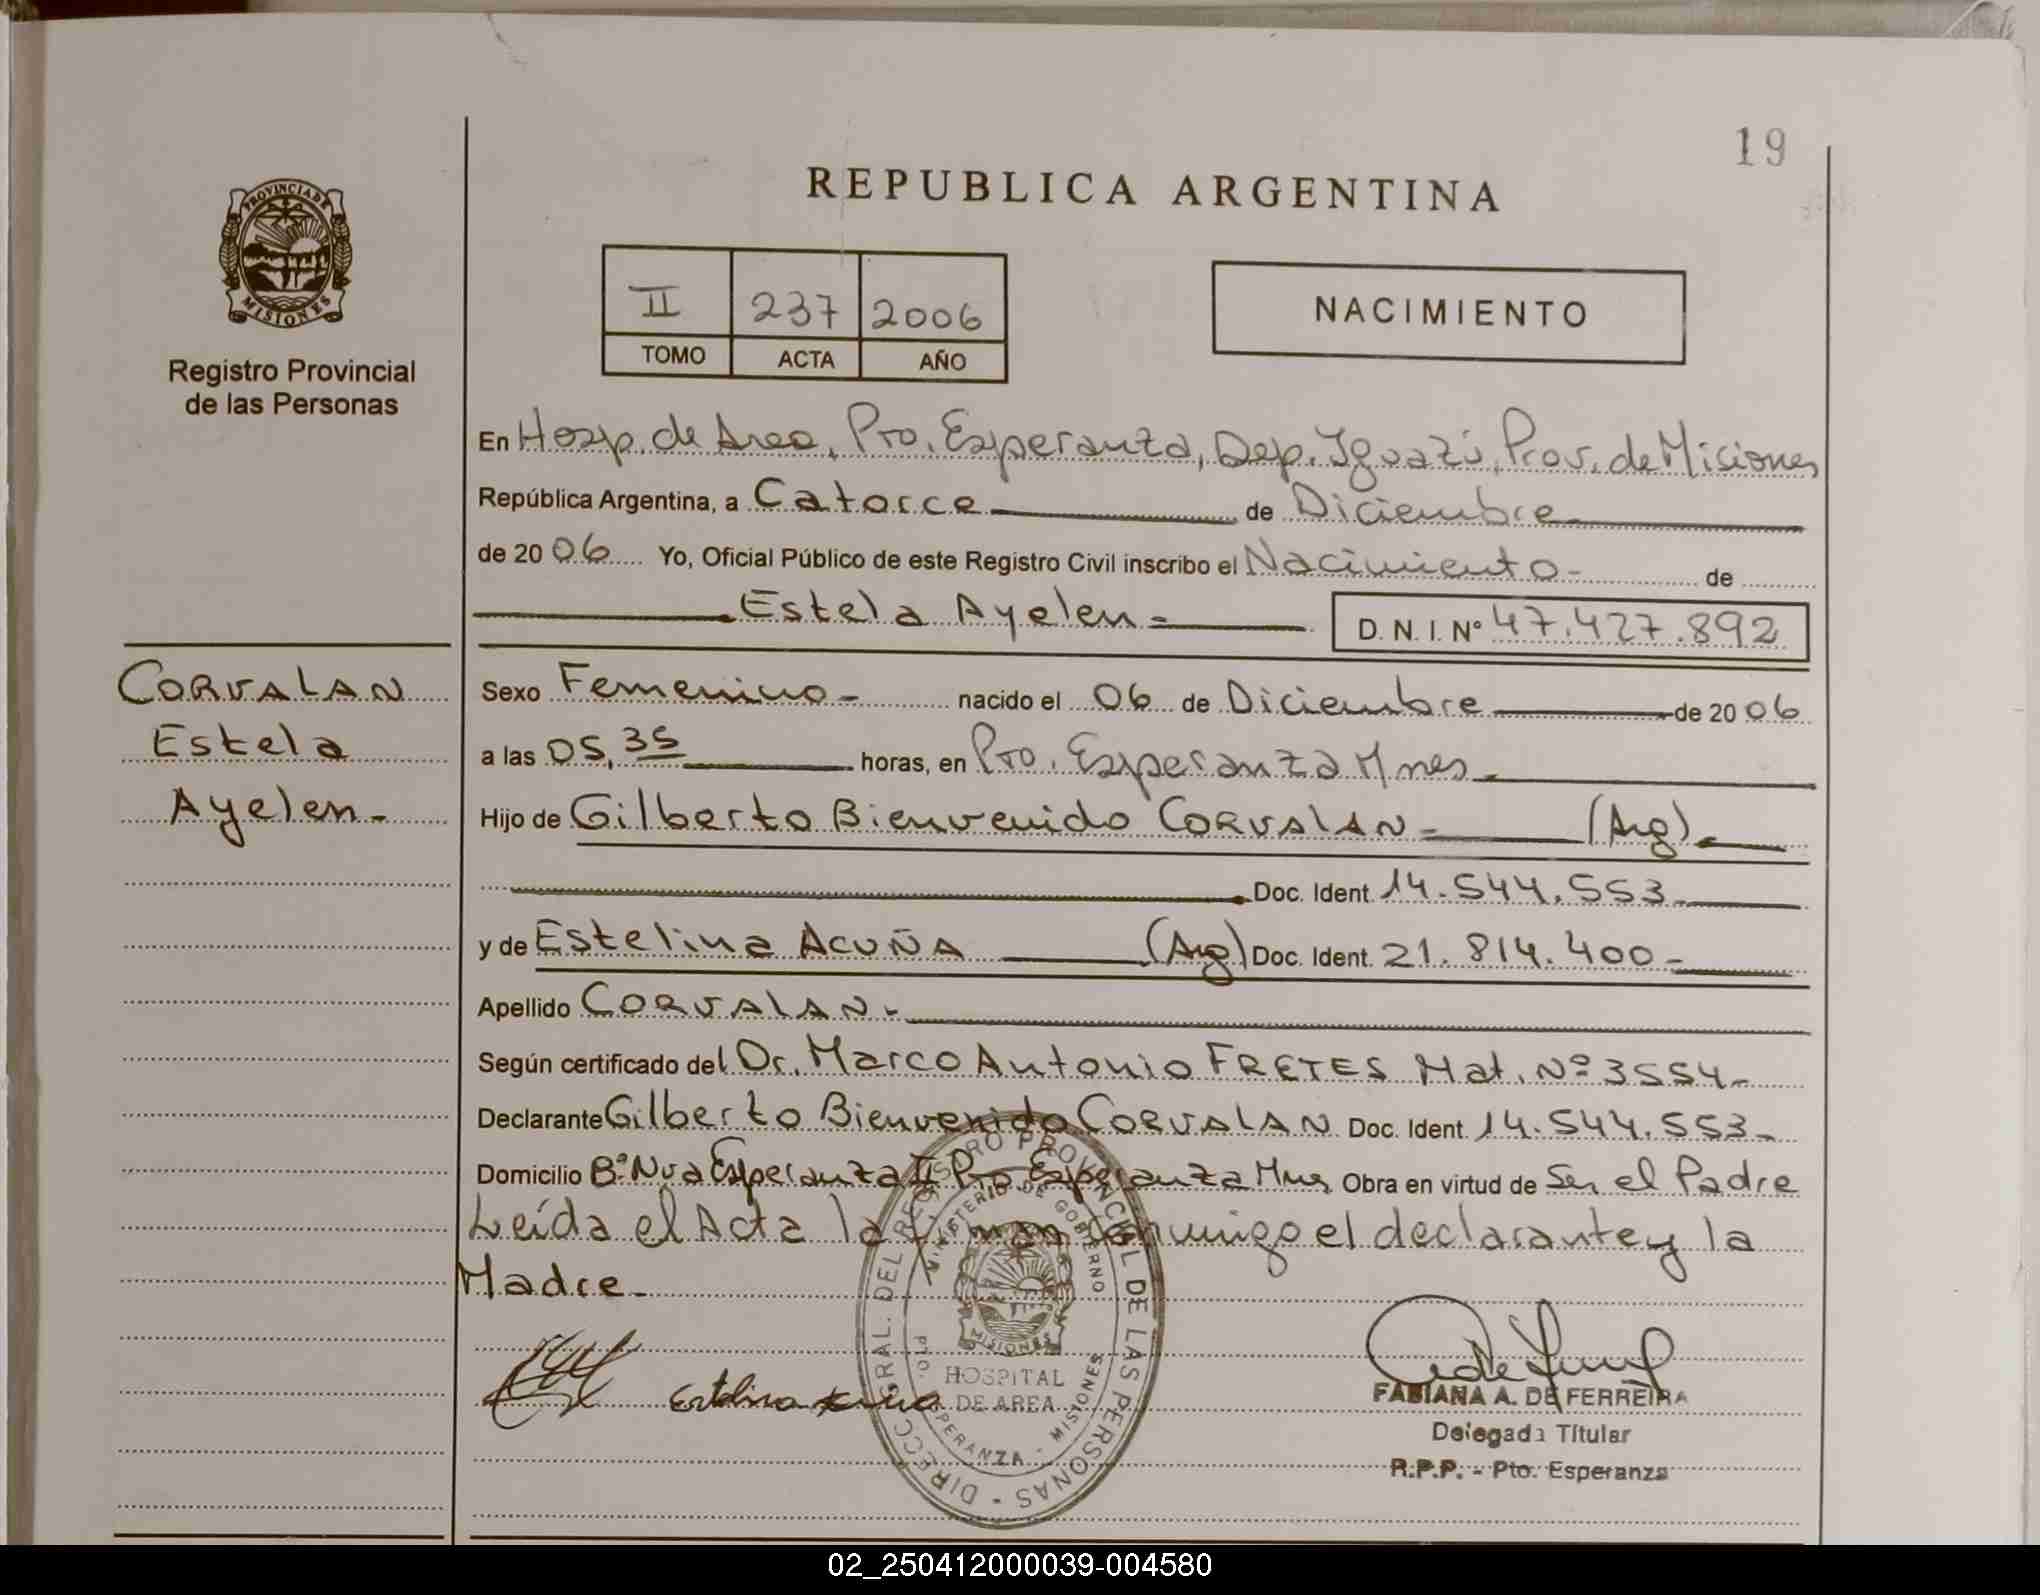 19
REPUBLICA ARGENTINA
PROVINCIA DE
MISIONES
Registro Provincial
de las Personas
II 237 2006
TOMO ACTA AÑO
NACIMIENTO
En Hosp. de Area, Pto. Esperanza, Dep. Iguazú, Prov. de Misiones
República Argentina, a Catorce de Diciembre
de 2006 Yo, Oficial Público de este Registro Civil inscribo el Nacimiento- de
Estela Ayelen=
D. N. I. Nº 47.427.892
CORVALAN
Estela
Ayelen-
Sexo Femenino- nacido el 06 de Diciembre de 2006
a las 05,35 horas, en Pto. Esperanza Mnes-
Hijo de Gilberto Bienvenido CORVALAN= (Arg)-
Doc. Ident. 14.544.553-
y de Estelina ACUÑA (Arg) Doc. Ident. 21.814.400-
Apellido CORVALAN-
Según certificado del Dr. Marco Antonio FRETES Mat. Nº 3554-
Declarante Gilberto Bienvenido CORVALAN Doc. Ident. 14.544.553-
Domicilio Bº Nva Esperanza II Pto Esperanza Mnes Obra en virtud de Ser el Padre
Leída el Acta la firman conmigo el declarante y la
Madre-
DIRECC. GRAL. DEL REGISTRO PROVINCIAL DE LAS PERSONAS -
MINISTERIO DE GOBIERNO
MISIONES
HOSPITAL
DE AREA
PTO. ESPERANZA - MISIONES
Estelina Acuña
FABIANA A. DE FERREIRA
Delegada Titular
R.P.P. - Pto. Esperanza
02_250412000039-004580